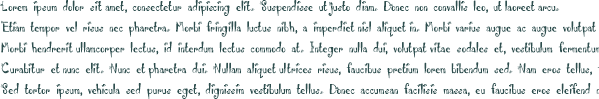 Lorem ipsum dolor sit amet, consectetur adipiscing elit. Suspendisse ut justo diam. Donec non convallis leo, ut laoreet arcu.
Etiam tempor vel risus nec pharetra. Morbi fringilla luctus nibh, a imperdiet nisl aliquet in. Morbi varius augue ac augue volutpat
Morbi hendrerit ullamcorper lectus, id interdum lectus commodo at. Integer nulla dui, volutpat vitae sodales et, vestibulum fermentum
Curabitur et nunc elit. Nunc et pharetra dui. Nullam aliquet ultrices risus, faucibus pretium lorem bibendum sed. Nam eros tellus,
Sed tortor ipsum, vehicula sed purus eget, dignissim vestibulum tellus. Donec accumsan facilisis massa, eu faucibus eros eleifend